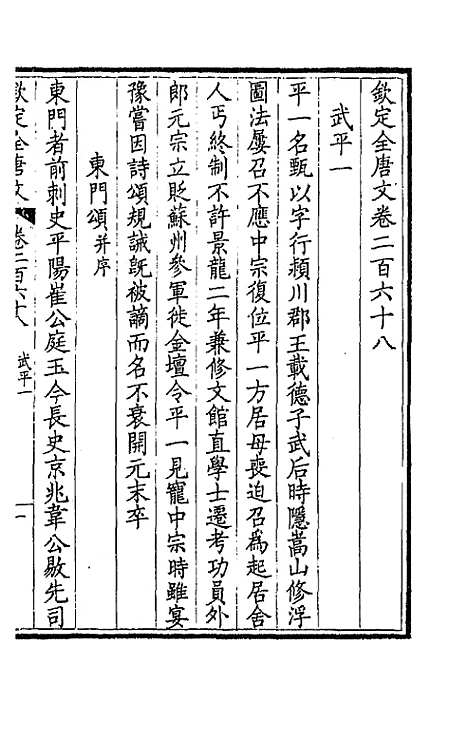 欽定全唐文卷二百六十八
武平一
平一名甄以字行潁川郡王載德子武后時隱嵩山修浮
圖法屢召不應中宗復位平一方居母喪迫召爲起居舍
人丐終制不許景龍二年兼修文館直學士遷考功員外
郎元宗立貶蘇州參軍徙金壇令平一見寵中宗時雖宴
豫嘗因詩頌規誡旣被謫而名不衰開元末卒
東門頌并序
東門者前刺史平陽崔公庭玉今長史京兆韋公敭先司
欽定全唐文 卷二百六十八 武平一 一